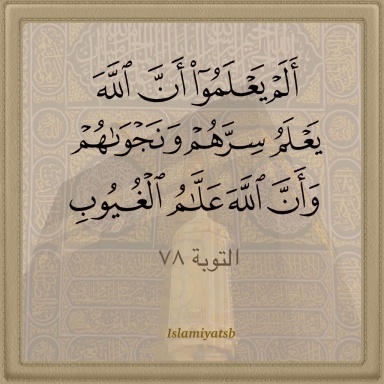 أَلَمۡ يَعۡلَمُوٓاْ أَنَّ ٱللَّهَ
يَعۡلَمُ سِرَّهُمۡ وَنَجۡوَىٰهُمۡ
وَأَنَّ ٱللَّهَ عَلَّٰمُ ٱلۡغُيُوبِ
التوبة ٧٨
Islamiyatsb